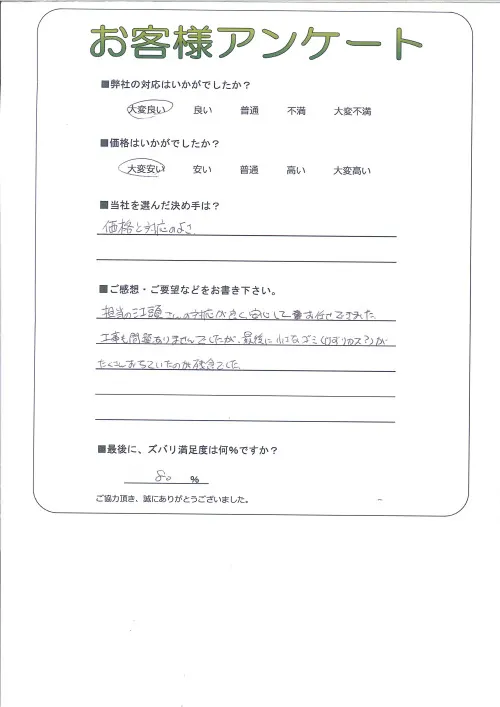 お客様アンケート
■弊社の対応はいかがでしたか？
大変良い 良い 普通 不満 大変不満
■価格はいかがでしたか？
大変安い 安い 普通 高い 大変高い
■当社を選んだ決め手は？
価格と対応のよさ
■ご感想・ご要望などをお書き下さい。
担当の江頭さんの対応が良く安心してお任せできました
工事も問題ありませんでしたが、最後に小さなゴミ(切りカス?)が
たくさんおちていたのが残念でした
■最後に、ズバリ満足度は何%ですか？
80 %
ご協力頂き、誠にありがとうございました。